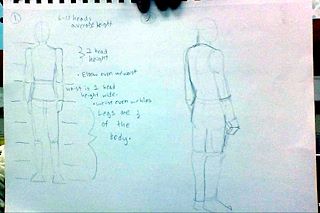 1
heads
average height
2
2 head
height
• Elbow even w/ waist
waist is 1 head
height wide.
Legs are ½
of the
body.